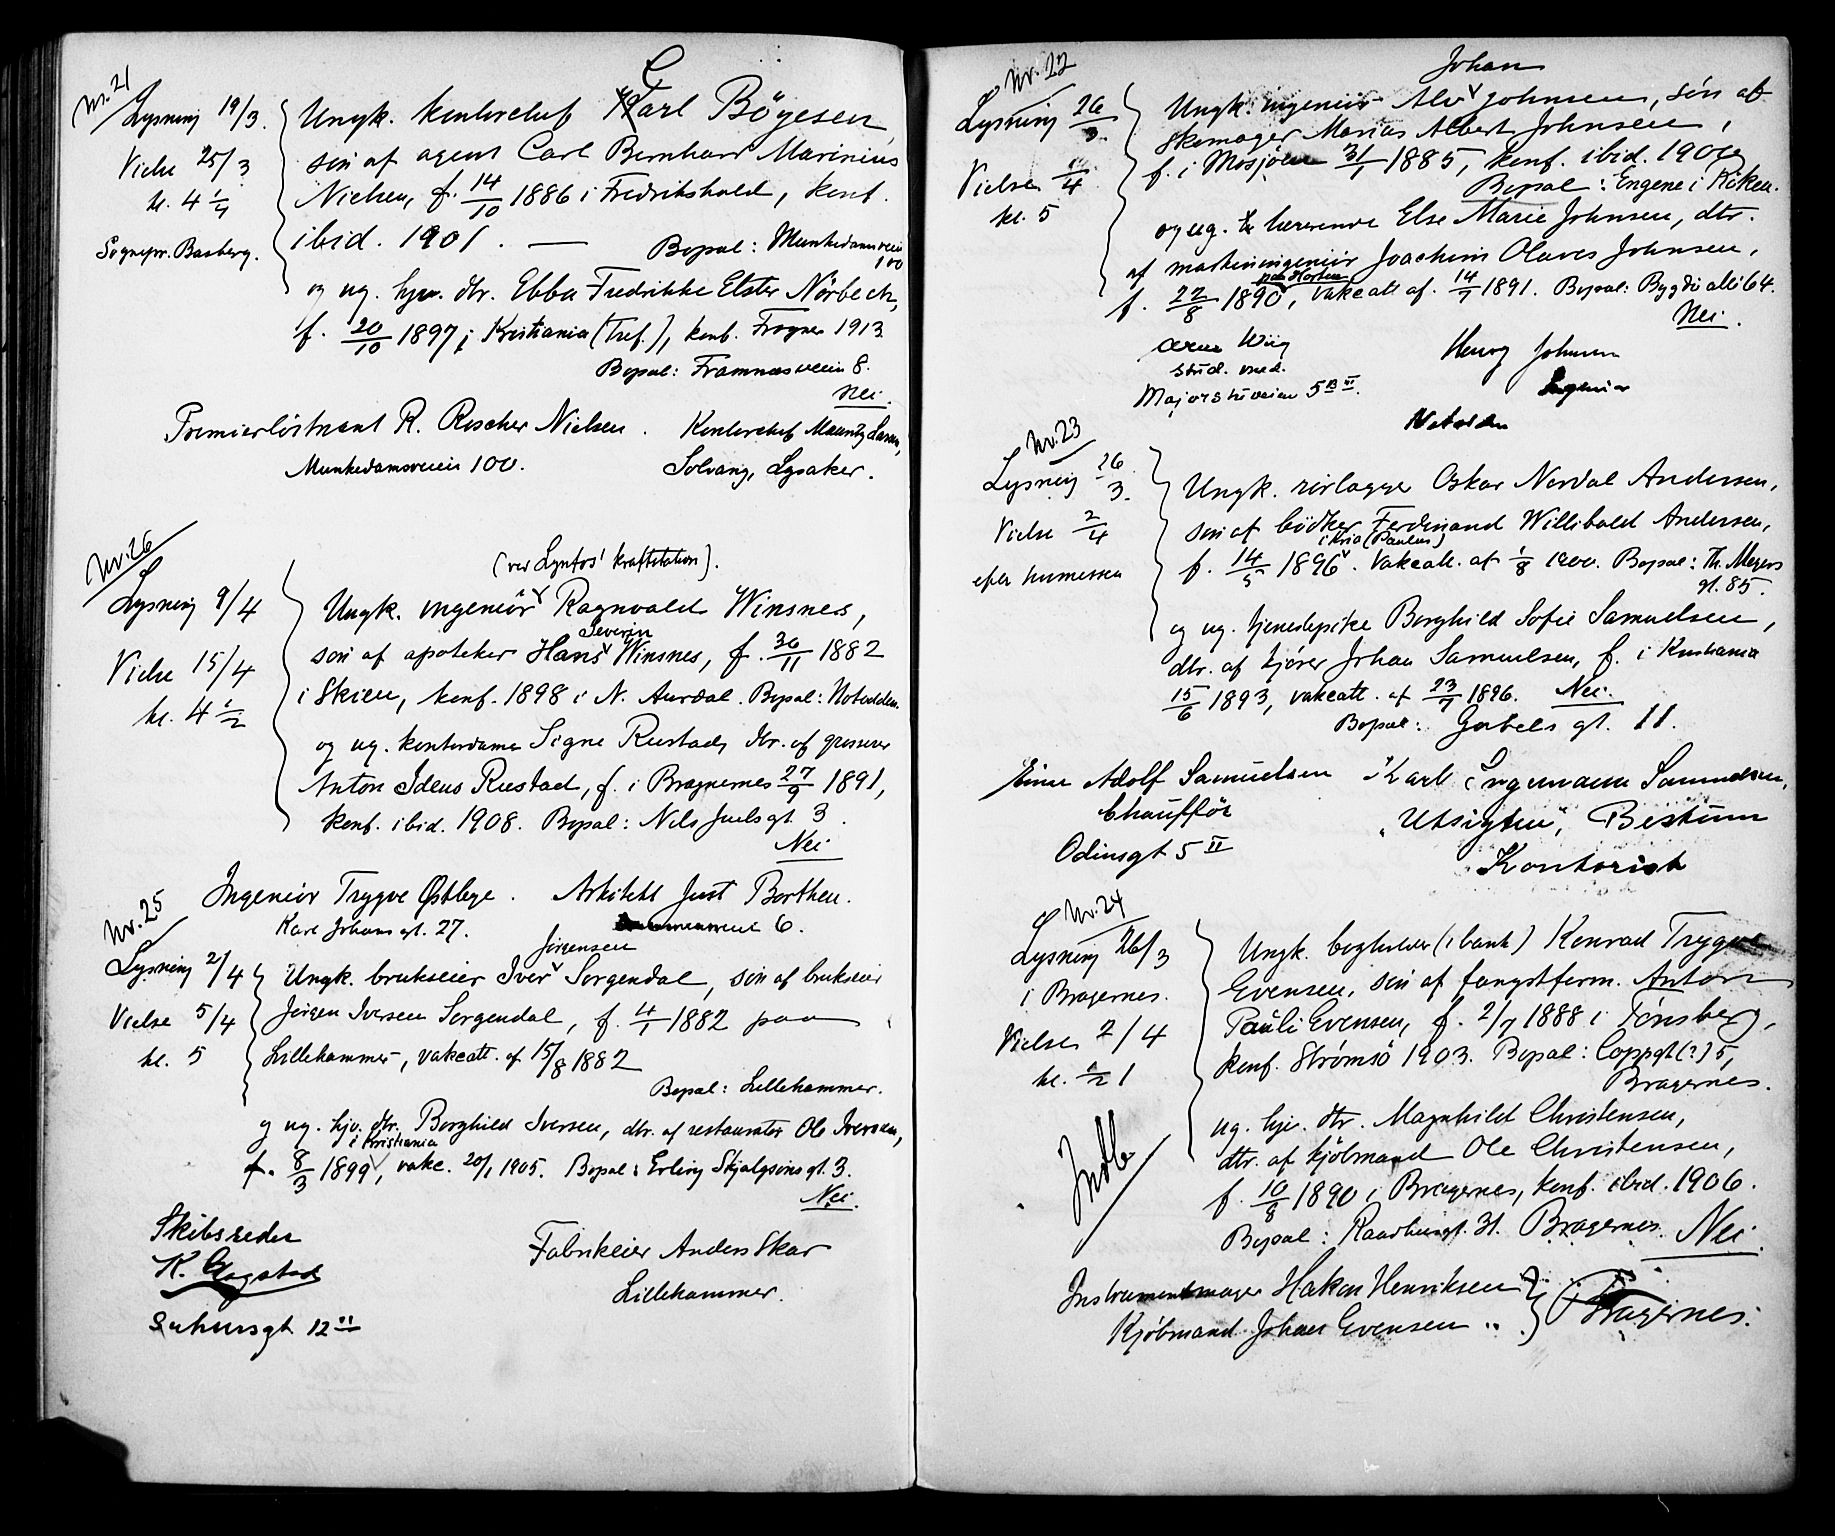 Nr. 21
Lysning 19/3.
Vielse 25/3
kl. 4 1/4
Sognepr. Basberg.
C
Ungk. kontorchef Karl Böyesen
søn af agent Carl Bernhard Marinius
Nielsen, f. 14/10 1886 i Fredrikshald, konf.
ibid. 1901. —
Bopæl: Munkedamsveien
100
og ug. hjv. dtr. Ebba Fredrikke Elster Nörbech,
f. 20/10 1897 i Kristiania (Tref.), konf. Frogner 1913
Bopæl: Framnæsveien 8.
Nei.
Premierløitnant R. Roscher Nielsen. Kontorchef Mauritz
Munkedamsveien 100. Solvang, Lysaker.
Nr. 26
Lysning 9/4
Vielse 15/4
kl. 4 1/2
(ved kraftstation).
Ungk. ingeniör Ragnvald Winsnes,
Severin
søn af apoteker Hans Winsnes, f. 30/11 1882
i Skien, konf. 1898 i N. Aurdal. Bopæl: Notodden
og ug. kontordame Signe Rustad, dtr. af grosserer
Anton Ideus Rustad, f. i Bragernes 27/9 1891,
konf. ibid. 1908. Bopæl: Nils Juelsgt 3.
Nei
Ingeniør Trygve Østbye. Arkitekt Just Borthen.
Karl Johans gt. 27. 6.
Nr. 25
Lysning 2/4
Vielse 5/4
kl. 5
Jörgensen
Ungk. brukseier Iver Sorgendal, søn af brukseier
Jörgen Iversen Sorgendal, f. 4/1 1882 paa
Lillehammer, vakcatt. af 15/8 1882
Bopæl: Lillehammer.
og ug. hjv. dtr. Borghild Iversen, dtr. af restauratør Ole Iversen,
i Kristiania
f. 8/3 1899, vakc. 20/1 1905. Bopæl: Erling Skjalgsøns gt. 3.
Nei.
Skibsreder
K.
Schusgt 12 II
Fabrikeier Anders Skar
Lillehammer.
Nr. 22
Lysning 26/3.
Vielse /4
kl. 5
Johan
Ungk. ingeniør Alv Johnsen, søn af
skomager Marius Albert Johnsen,
f. i Mosjøen 31/1 1885, konf. ibid. 190
Bopæl: Engene i Röken.
og ug. lærerinde Else Marie Johnsen, dtr.
af maskiningeniør Joachim Olaves Johnsen,
paa Horten
f. 22/8 1890, vakcatt af. 14/7 1891. Bopæl: Bygdö allé 64.
Nei.
Arne Wiig
stud. med.
Majorstuveien 5 B VI.
Henry Johnsen
Ingeniør
Notodden
Nr. 23
Lysning 26/3.
Vielse 2/4
efter
Ungk. rørlægger Oskar Nordal Andersen,
søn af bödker Ferdinand Willibald Andersen,
i Kria (Paulus)
f. 14/5 1896. Vakcatt. af 1/8 1900. Bopæl: Th. Meyers
gt. 85.
og ug. tjenestepike Borghild Sofie Samuelsen,
dtr. af kjører Johan Samuelsen, f. i Kristiania
15/6 1893, vakcatt. af 23/7 1896. Nei.
Bopæl: Gabels gt. 11.
Einar Adolf Samuelsen
Chauffør
Odinsgt 5 II
Karl Ingemann Samuelsen,
"Utsigten", Bestum
Kontorist
Nr. 24
Lysning 26/3
i Bragernes.
Vielse 2/4
kl. 1/2 1
Indb
Ungk. bogholder (i bank) Konrad Trygve
Evensen, søn af fangstform. Anton
Pauli Evensen, f. 2/7 1888 i Tønsberg,
konf. Strømsö 1903. Bopæl: Coppgt (?) 5,
Bragernes.
ug. hjv. dtr. Magnhild Christensen,
dtr. af kjöbmand Ole Christensen,
f. 10/8 1890 i Bragernes, konf. ibid. 1906.
Bopæl: Raadhusgt. 31. Bragernes. Nei.
Instrumentmager Hakon Henriksen
Kjöbmand Johan Evensen " } Bragernes.